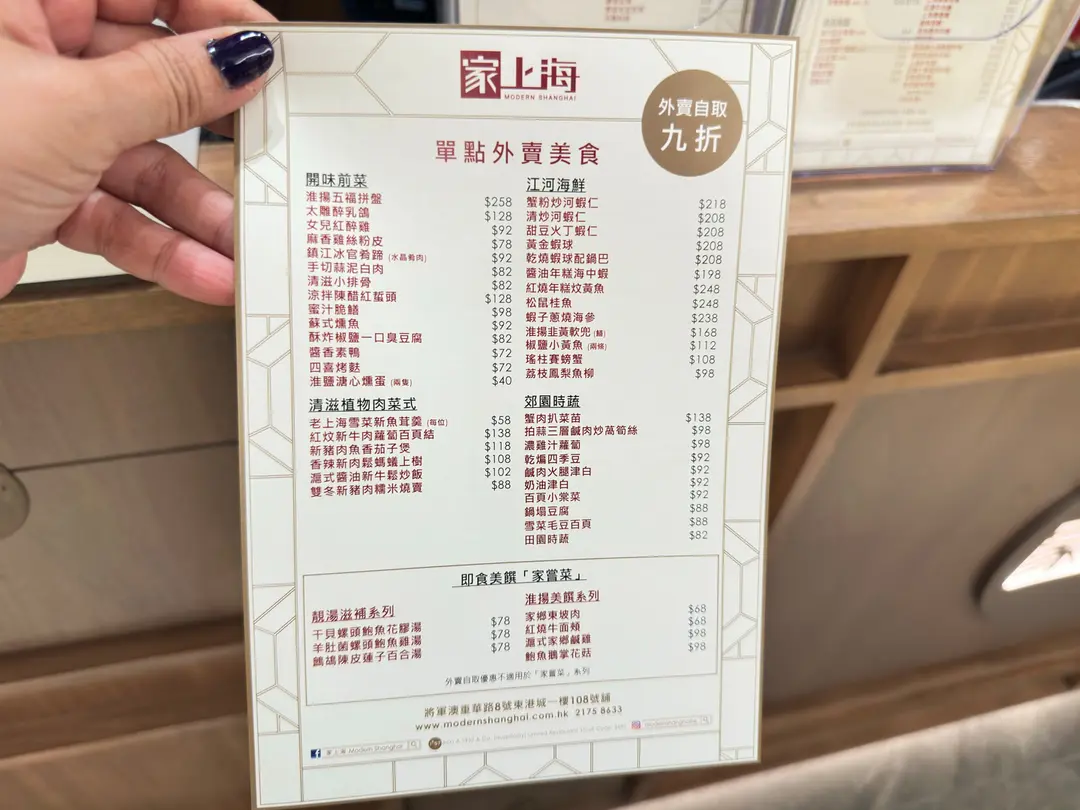 家上海
MODERN SHANGHAI
外賣自取
九折
單點外賣美食
開味前菜
淮揚五福拼盤 $258
太雕醉乳鴿 $128
女兒紅醉雞 $92
麻香雞絲粉皮 $78
鎮江冰官肴蹄 (水晶肴肉) $92
手切蒜泥白肉 $82
清滋小排骨 $82
涼拌陳醋紅蜇頭 $128
蜜汁脆鱔 $98
蘇式燻魚 $92
酥炸椒鹽一口臭豆腐 $82
醬香素鴨 $72
四喜烤麩 $72
淮鹽溏心燻蛋 (兩隻) $40
清滋植物肉菜式
老上海雪菜新魚茸羹 (每位) $58
紅炆新牛肉蘿蔔百頁結 $138
新豬肉魚香茄子煲 $118
香辣新肉鬆螞蟻上樹 $108
滬式醬油新牛鬆炒飯 $102
雙冬新豬肉糯米燒賣 $88
江河海鮮
蟹粉炒河蝦仁 $218
清炒河蝦仁 $208
甜豆火丁蝦仁 $208
黃金蝦球 $208
乾燒蝦球配鍋巴 $208
醬油年糕海中蝦 $198
紅燒年糕炆黃魚 $248
松鼠桂魚 $248
蝦子蔥燒海參 $238
淮揚韭黃軟兜 (鱔) $168
椒鹽小黃魚 (兩條) $112
瑤柱賽螃蟹 $108
荔枝鳳梨魚柳 $98
郊園時蔬
蟹肉扒菜苗 $138
拍蒜三層鹹肉炒萵筍絲 $98
濃雞汁蘿蔔 $98
乾煸四季豆 $92
鹹肉火腿津白 $92
奶油津白 $92
百頁小棠菜 $92
鍋塌豆腐 $88
雪菜毛豆百頁 $88
田園時蔬 $82
即食美饌「家嘗菜」
靚湯滋補系列
干貝螺頭鮑魚花膠湯 $78
羊肚菌螺頭鮑魚雞湯 $78
鷓鴣陳皮蓮子百合湯 $78
淮揚美饌系列
家鄉東坡肉 $68
紅燒牛面頰 $68
滬式家鄉鹹雞 $98
鮑魚鵝掌花菇 $98
外賣自取優惠不適用於「家嘗菜」系列
將軍澳重華路8號東港城一樓108號舖
www.modernshanghai.com.hk 2175 8633
家上海 Modern Shanghai
modernshanghai